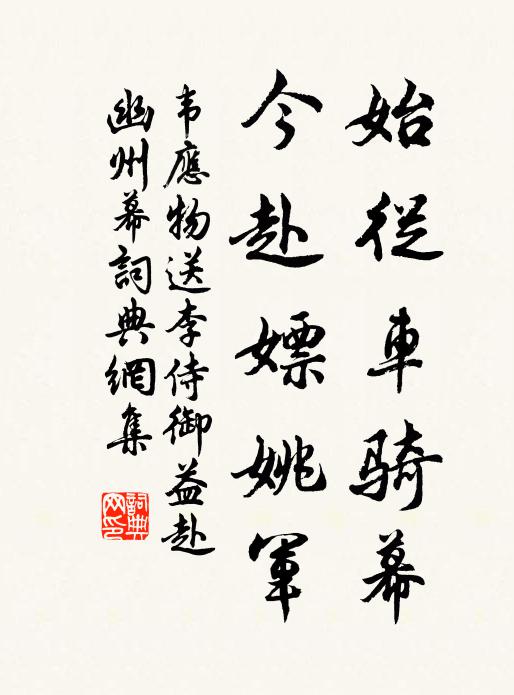 始從車騎幕
今赴嫖姚軍
韦應物送李侍御益赴
幽州幕詞典網集
詞典
网印